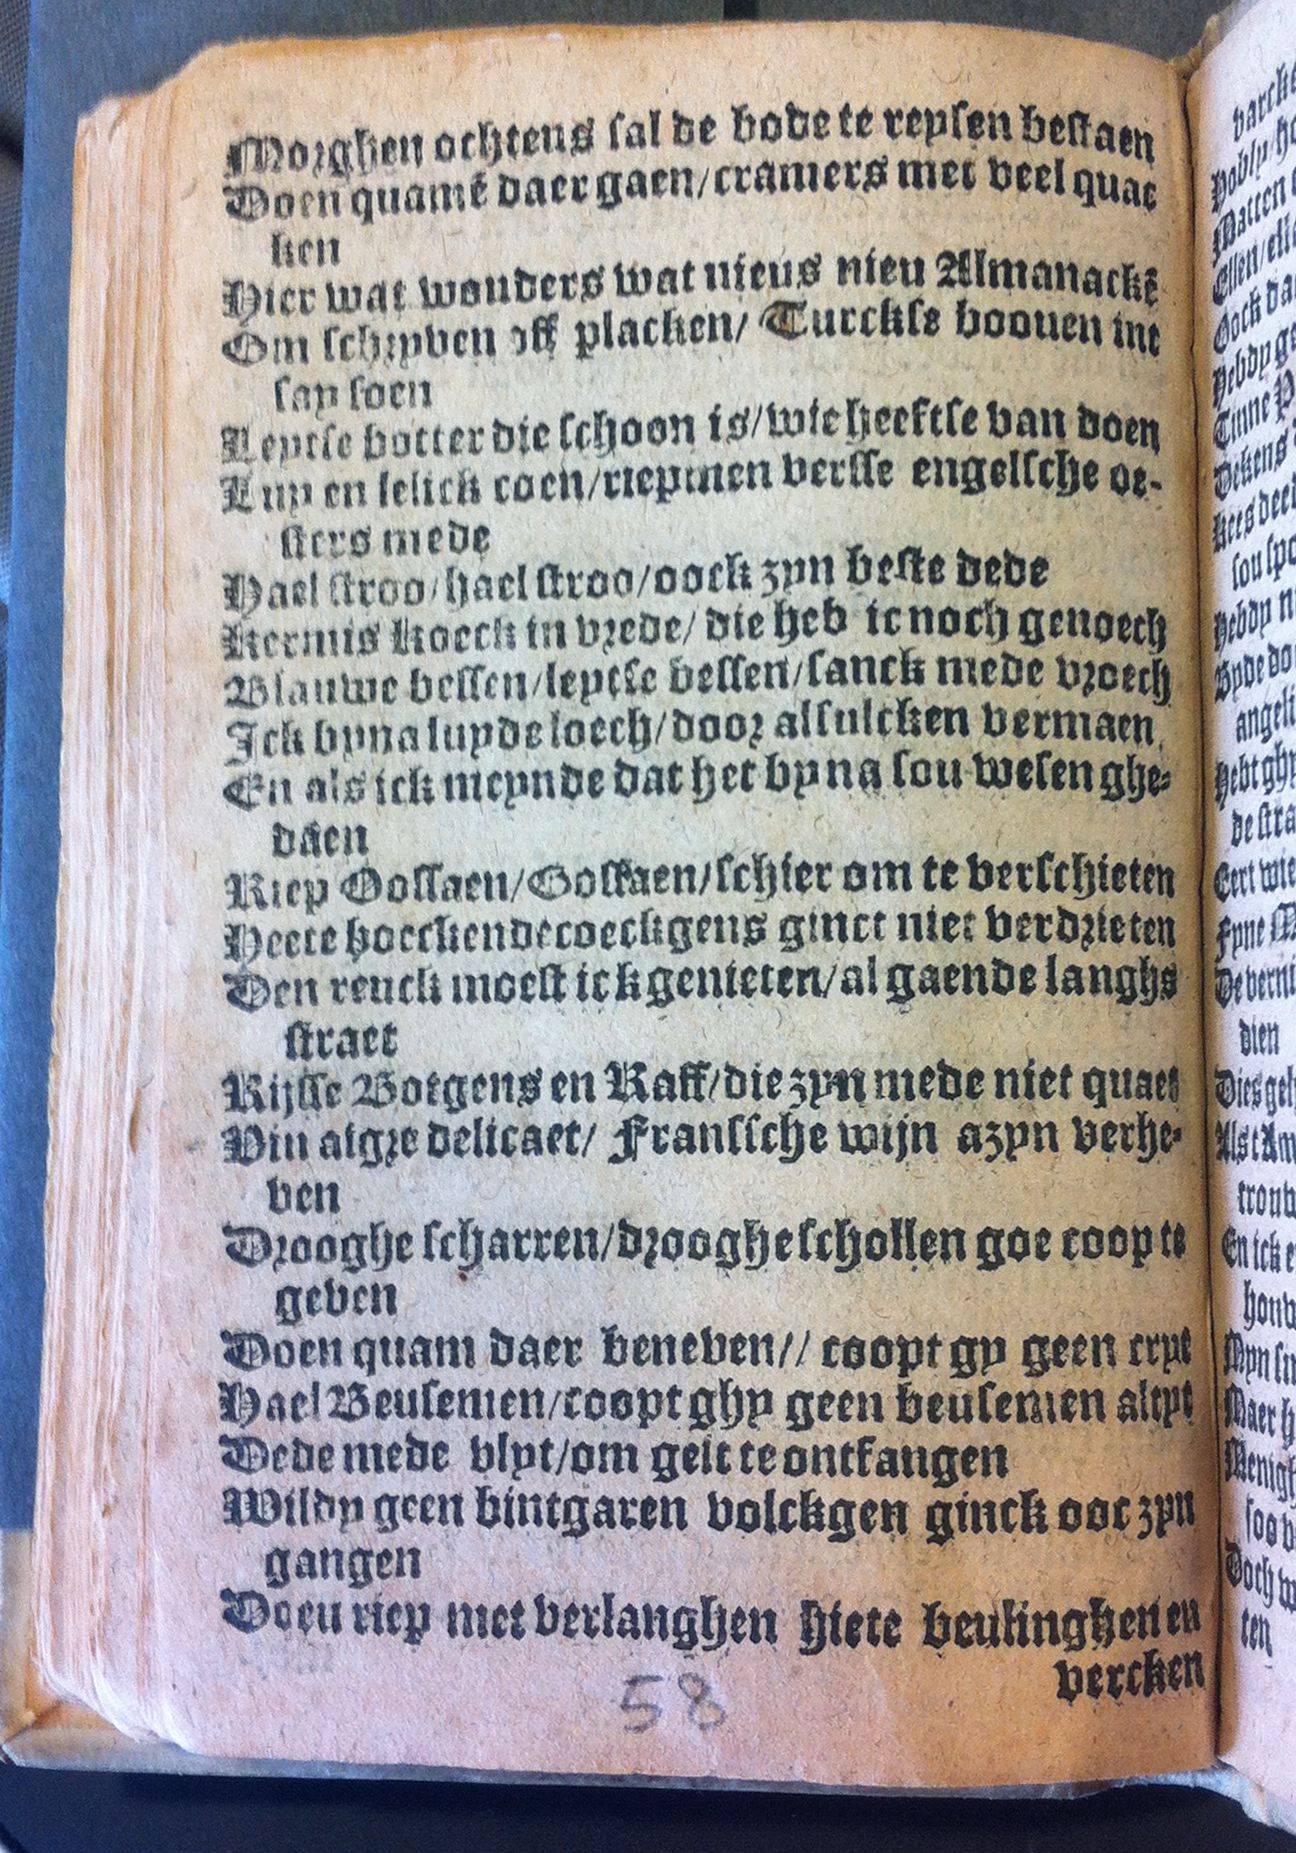 Morghen ochtens sal de bode te reysen bestaen
Doen quamē daer gaen/cramers met veel quac
ken
Hier wat wonders wat nieus nieu Almanackē
Om schryven off placken/ Turckse boonen int
say soen
Leytse botter die schoon is/wie heeftse van doen
Luy en selick coen/riepmen versse engelsche oe-
sters mede
Hael stroo/hael stroo/oock zyn beste dede
Kermis koeck in vrede/ die heb ic noch genoech
Blauwe bessen/leytse bessen/sanck mede vroech
Ick byna luyde loech/door alsulcken vermaen
En als ick meynde dat het byna sou wesen ghe-
daen
Riep Oossaen/Gossaen/schier om te verschieten
Heete boeckende coeckgens ginct niet verdrieten
Den reuck moest ick genieten/al gaende langhs
straet
Rijsse Botgens en Raff/die zyn mede niet quaet
Vin aigre delicaet/ Franssche wijn azyn verhe-
ven
Drooghe scharren/drooghe schollen goe coop te
geven
Doen quam daer beneven// coopt gy geen cryt
Hael Beusemen/coopt ghy geen beusemen altyt
Dede mede vlyt/om gelt te ontfangen
Wildy geen bintgaren volckgen ginck ooc zyn
gangen
Doen riep met verlanghen hiete beulinghen en
vercken
58